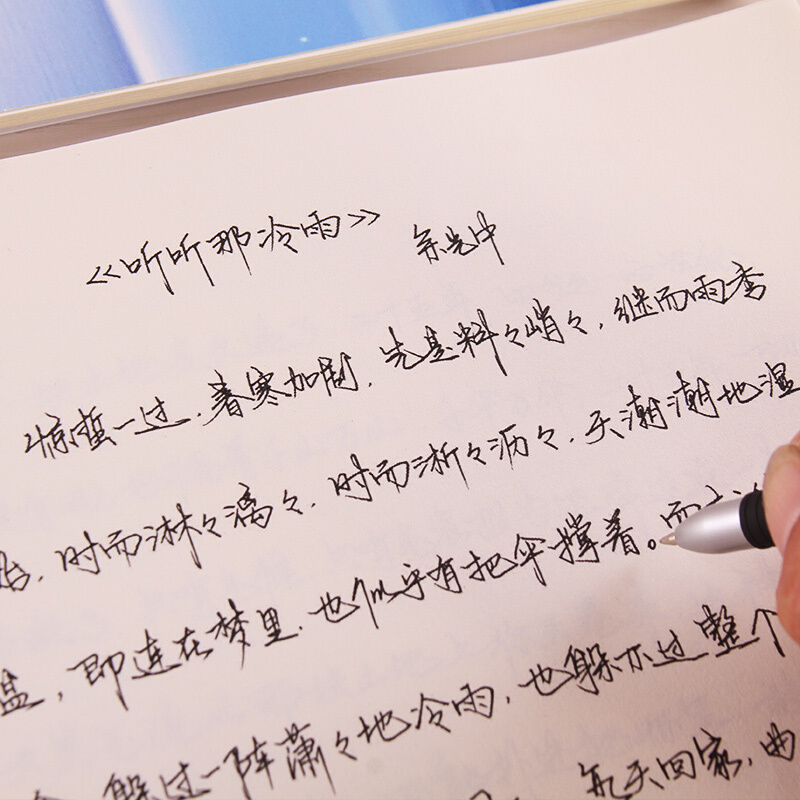 《听听那冷雨》 余光中
惊蛰一过，春寒加剧，先是料々峭々，继而雨季
始，时而淋々漓々，时而淅々沥々，天潮潮地湿
湿，即连在梦里，也似乎有把伞撑着。而
躲过一阵潇々地冷雨，也躲不过整个
每天回家，曲